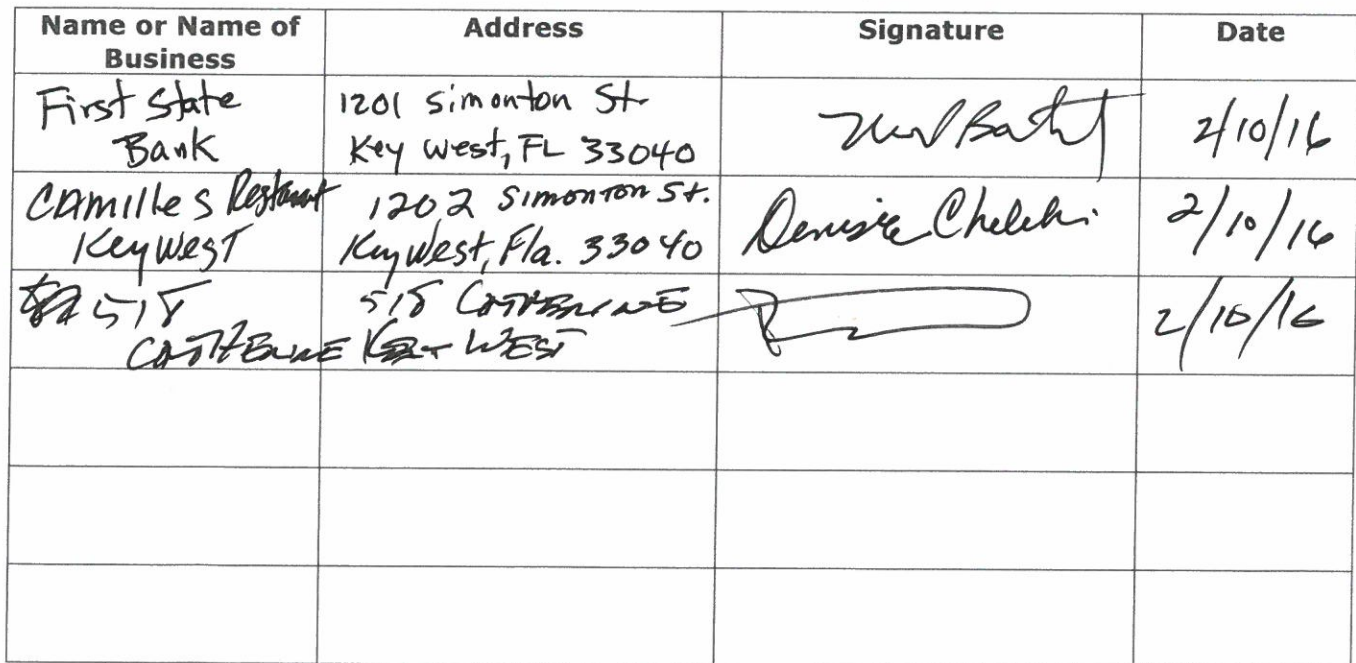 Name or Name of Business
Address
Signature
Date
First State
Bank
1201 Simonton St.
Key West, FL 33040
2/10/16
Camilles Restaurant
Key West
1202 Simonton St.
Key West, Fla. 33040
Denise
2/10/16
518
Catherine
518 Catherine
Key West
2/10/16